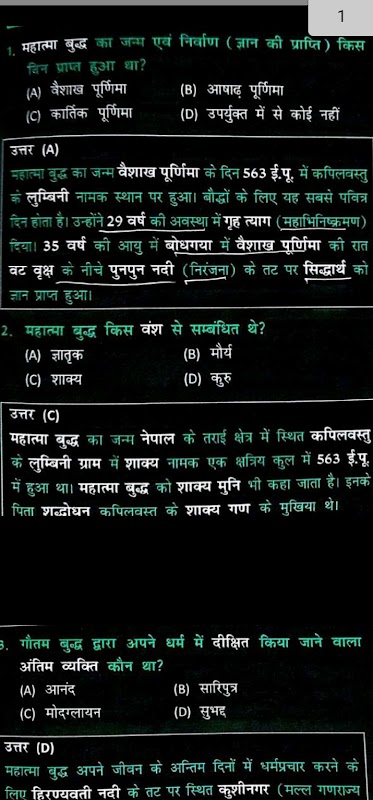 1
1. महात्मा बुद्ध का जन्म एवं निर्वाण (ज्ञान की प्राप्ति) किस
दिन प्राप्त हुआ था?
(A) वैशाख पूर्णिमा (B) आषाढ़ पूर्णिमा
(C) कार्तिक पूर्णिमा (D) उपर्युक्त में से कोई नहीं
उत्तर (A)
महात्मा बुद्ध का जन्म वैशाख पूर्णिमा के दिन 563 ई.पू. में कपिलवस्तु
के लुम्बिनी नामक स्थान पर हुआ। बौद्धों के लिए यह सबसे पवित्र
दिन होता है। उन्होंने 29 वर्ष की अवस्था में गृह त्याग (महाभिनिष्क्रमण)
दिया। 35 वर्ष की आयु में बोधगया में वैशाख पूर्णिमा की रात
वट वृक्ष के नीचे पुनपुन नदी (निरंजना) के तट पर सिद्धार्थ को
ज्ञान प्राप्त हुआ।
2. महात्मा बुद्ध किस वंश से सम्बंधित थे?
(A) ज्ञातृक (B) मौर्य
(C) शाक्य (D) कुरु
उत्तर (C)
महात्मा बुद्ध का जन्म नेपाल के तराई क्षेत्र में स्थित कपिलवस्तु
के लुम्बिनी ग्राम में शाक्य नामक एक क्षत्रिय कुल में 563 ई.पू.
में हुआ था। महात्मा बुद्ध को शाक्य मुनि भी कहा जाता है। इनके
पिता शुद्धोधन कपिलवस्तु के शाक्य गण के मुखिया थे।
3. गौतम बुद्ध द्वारा अपने धर्म में दीक्षित किया जाने वाला
अंतिम व्यक्ति कौन था?
(A) आनंद (B) सारिपुत्र
(C) मोदग्लायन (D) सुभद्द
उत्तर (D)
महात्मा बुद्ध अपने जीवन के अन्तिम दिनों में धर्मप्रचार करने के
लिए हिरण्यवती नदी के तट पर स्थित कुशीनगर (मल्ल गणराज्य